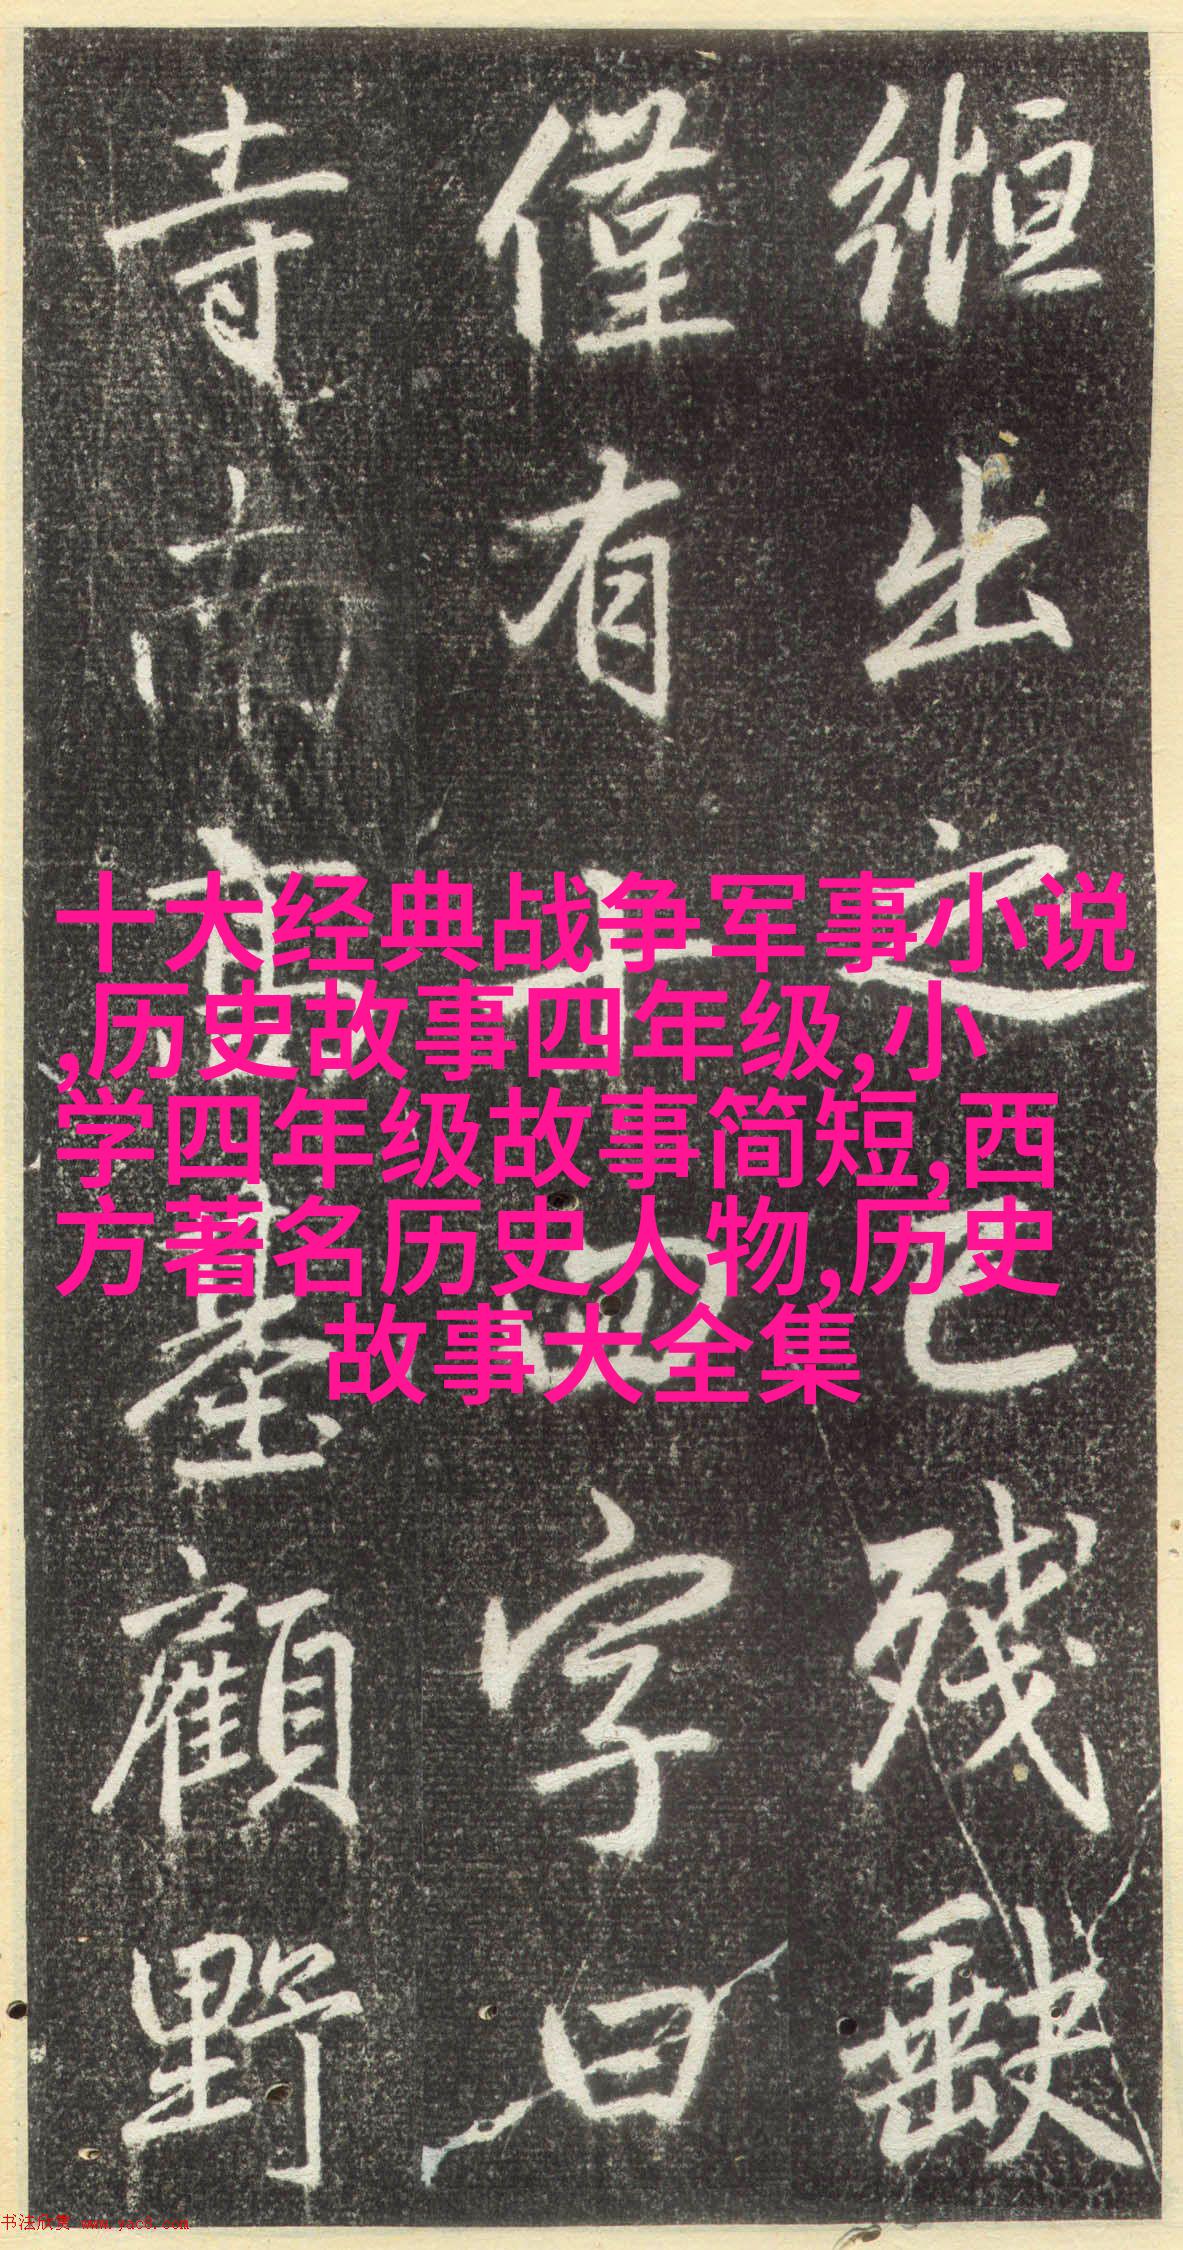 縆出之已残缺
僅有十四字曰
寺南高基顧野
十大经典战争军事小说
,历史故事四年级,小
学四年级故事简短,西
方著名历史人物,历史
故事大全集
书法欣赏 www.yac8.com